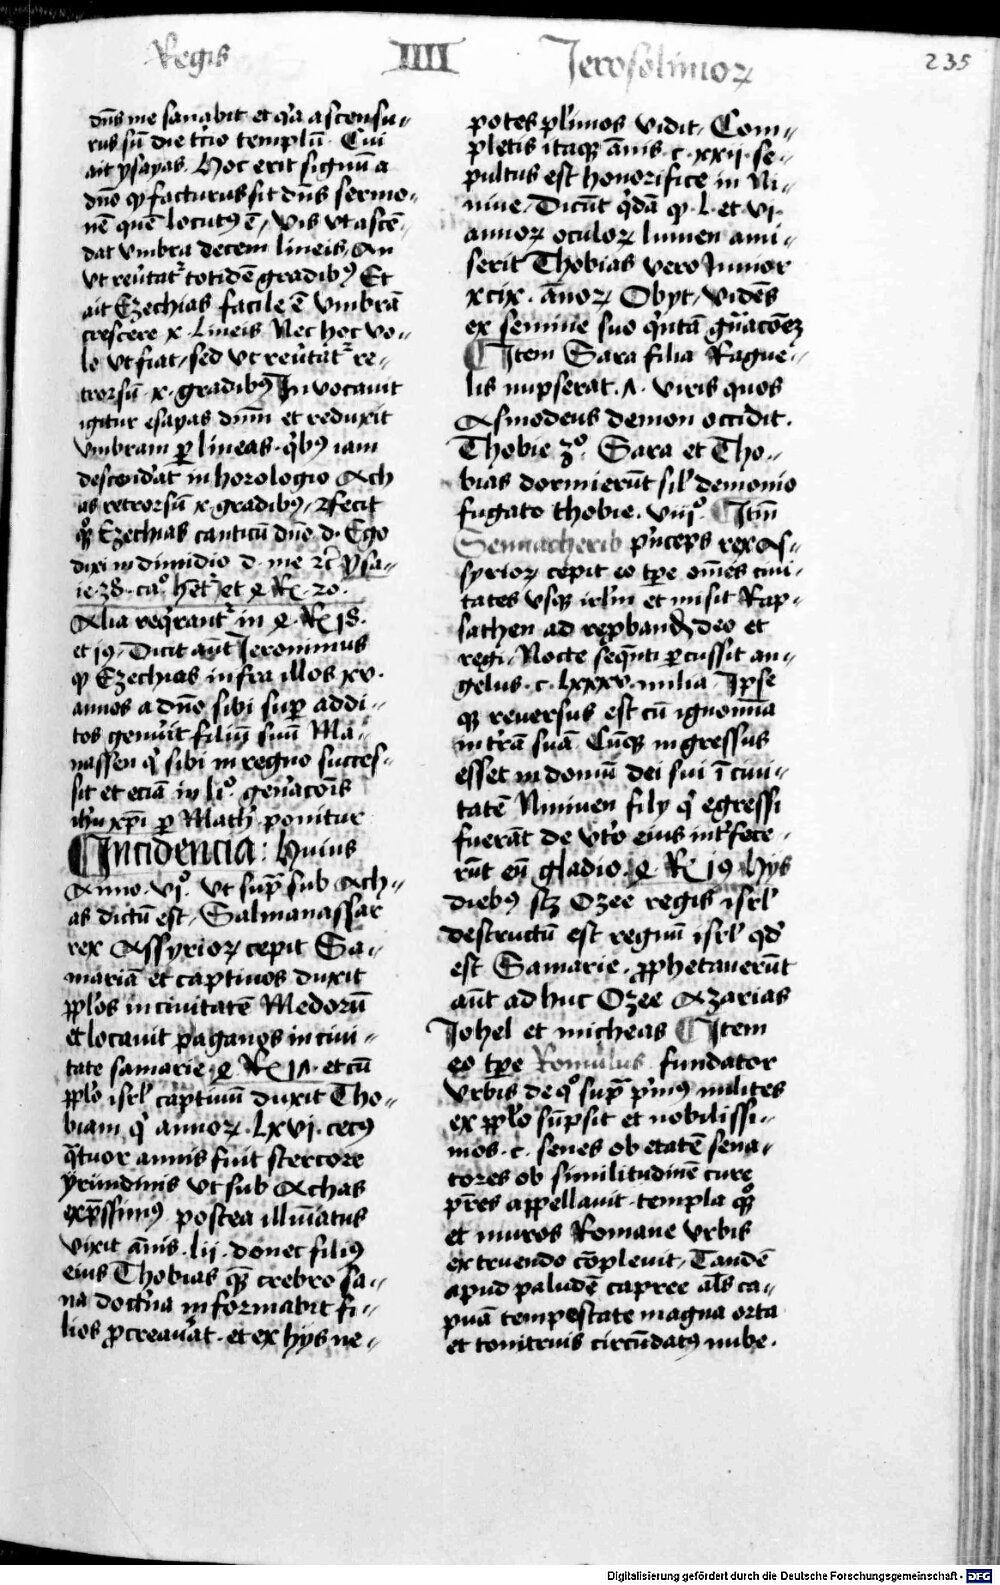 Regis IIII Jerosolimoꝝ 235
dn̄s me sanabit et q̄a ascensu-
rus sū die t̄cio templū. Cui
ait ysayas. Hoc erit signū a
dn̄o ꝙ facturus sit dn̄s sermo-
nē quē locutꝰ ē, Vis vt ascē-
dat vmbra decem lineis, An
vt reu̓tat᷑ totidē gradibꝰ Et
ait Ezechias facile ē vmbrā
crescere x lineis Nec hoc vo-
lo vt fiat, sed vt reu̓tat᷑ re-
trorsū x gradibꝰ Inuocauit
igitur esayas dn̄m et reduxit
vmbram ꝑ lineas q̄bꝰ iam
descend̓at in horologio Ach
as retrorsū x gradibꝰ, fecit
qꝫ Ezechias canticū dn̄o d. Ego
dixi in dimidio d. me Ysa-
ie 38. ca. hēt᷑ et 4 Rͤ 20.
Alia req̄rant᷑ in 4 Rͤ 18.
et 19. Dicit aūt Jeronimus
ꝙ Ezechias infra illos xv.
annos a dn̄o sibi suꝑ addi-
tos genu̓it filiū suū Ma-
nassen q̓ sibi in regno succes-
sit et eciā in li. gen̄acōis
ih̓u xp̄i ꝑ Math̓ ponitur
¶ Incidencia: Huius
Anno vi. vt sup̄ sub Ach-
as dictū est, Salmanassar
rex Assyrioꝝ cepit Sa-
mariā et captiuos duxit
pplos in ciuitatē Medorū
et locauit paganos in ciui-
tate samarie 4 Rͤ 17 et cū
pplo isrl̓ captiuū duxit Tho-
biam q̓ annoꝝ lxvj cecꝰ
q̄tuor annis fuit stercore
yrundinis vt sub Achas
exp̄ssimꝰ postea illuīatus
vixit ānis lij donec filiꝰ
eius Thobias quē crebro sa-
na doct̓na informabit fi-
lios ꝓcreau̓at et ex hijs ne-
potes pl̓imos vidit, Com-
pletis itaqꝫ ānis c xxij se-
pultus est honorifice in Ni-
niue, Dicūt q̄dā ꝙ l et vj
annoꝝ oculoꝝ lumen ami-
serit Thobias vero Junior
xcix ānoꝝ Obyt, vidēs
ex semine suo q̓ntā gn̄acōeꝫ
¶ Item Sara filia Rague-
lis nupserat 7 viris quos
Asmodeus demon occidit.
Thobie 3. Sara et Tho-
bias dormierūt sil̓ demonio
fugato thobie. viij. ¶ Itm̄
Sennacherib p̓nceps rex As-
syrioꝝ cepit eo tp̄e om̄es ciui-
tates vsqꝫ irl̓m et misit Rap-
sathen ad deo et
regi, Nocte seq̄nti ꝑcussit an-
gelus c lxxxv milia. Ipse
qꝫ reuersus est cū ignomīa
in t̓rā suā Cūqꝫ ingressus
esset in domū dei sui ī ciui-
tatē Niniuen filij q̓ egressi
fuerāt de vt̓o eius int̓fece-
rūt eū gladio. 4 Rͤ 19 hijs
diebꝰ scꝫ Ozee regis isrl̓
destructū est regnū isrl̓ qd̓
est Samarie. ꝓphetauerūt
aūt adhuc Ozee Azarias
Johel et micheas ¶ Item
eo tp̄e Romulus fundator
vrbis de qͦ sup̄ p̓mꝰ milites
ex pplo sūpsit et nobilissi-
mos c senes ob etatē sena-
tores ob similitudinē cure
p̄res appellauit templa qꝫ
et muros Romane vrbis
extruendo cōpleuit, Tandē
apud paludē capree al̓s ca-
puā tempestate magna orta
et tonitruis circūdatꝰ nube.
Digitalisierung gefördert durch die Deutsche Forschungsgemeinschaft - DFG